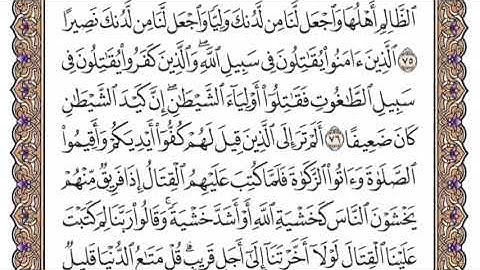 ٱلظَّالِمِ أَهْلُهَا وَٱجْعَل لَّنَا مِن لَّدُنكَ وَلِيًّا وَٱجْعَل لَّنَا مِن لَّدُنكَ نَصِيرًا
٧٥ ٱلَّذِينَ ءَامَنُوا۟ يُقَـٰتِلُونَ فِى سَبِيلِ ٱللَّهِ ۖ وَٱلَّذِينَ كَفَرُوا۟ يُقَـٰتِلُونَ فِى
سَبِيلِ ٱلطَّـٰغُوتِ فَقَـٰتِلُوٓا۟ أَوْلِيَآءَ ٱلشَّيْطَـٰنِ ۖ إِنَّ كَيْدَ ٱلشَّيْطَـٰنِ
كَانَ ضَعِيفًا ٧٦ أَلَمْ تَرَ إِلَى ٱلَّذِينَ قِيلَ لَهُمْ كُفُّوٓا۟ أَيْدِيَكُمْ وَأَقِيمُوا۟
ٱلصَّلَوٰةَ وَءَاتُوا۟ ٱلزَّكَوٰةَ فَلَمَّا كُتِبَ عَلَيْهِمُ ٱلْقِتَالُ إِذَا فَرِيقٌ مِّنْهُمْ
يَخْشَوْنَ ٱلنَّاسَ كَخَشْيَةِ ٱللَّهِ أَوْ أَشَدَّ خَشْيَةً ۚ وَقَالُوا۟ رَبَّنَا لِمَ كَتَبْتَ
عَلَيْنَا ٱلْقِتَالَ لَوْلَآ أَخَّرْتَنَآ إِلَىٰٓ أَجَلٍ قَرِيبٍ ۗ قُلْ مَتَـٰعُ ٱلدُّنْيَا قَلِيلٌ